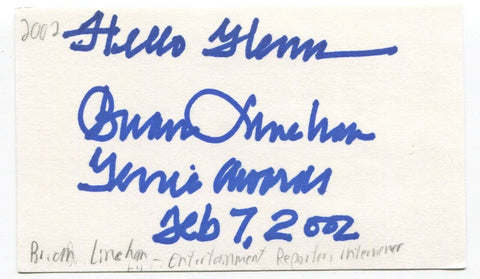 2002
Hello Glenn
Brian Linehan
Genie Awards
Feb 7, 2002
Brian Linehan - Entertainment Reporter, interviewer